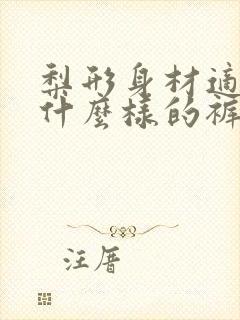 梨形身材適
什麼樣的褲
汪厝